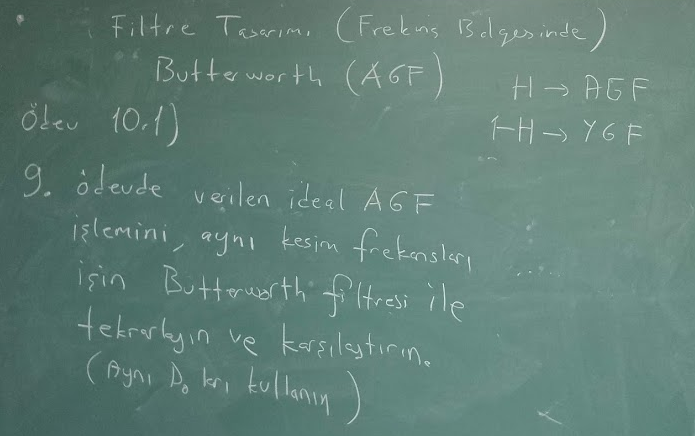 Filtre Tasarımı (Frekns Bölgesinde)
Butterworth (AGF)
H → AGF
Ödev 10.1)
1-H → YGF
9. ödevde verilen ideal AGF
işlemini, aynı kesim frekansları
için Butterworth filtresi ile
tekrarlayın ve karşılaştırın.
(Aynı D₀ ları kullanın)